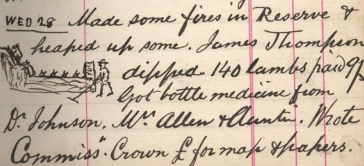 WED 28 Made some fires in Reserve &
heaped up some. James Thompson
dipped 140 lambs paid 9/
Got bottle medicine from
Dr Johnson. Mrs Allen & Auntie. Wrote
Commissr Crown £ for map & papers.